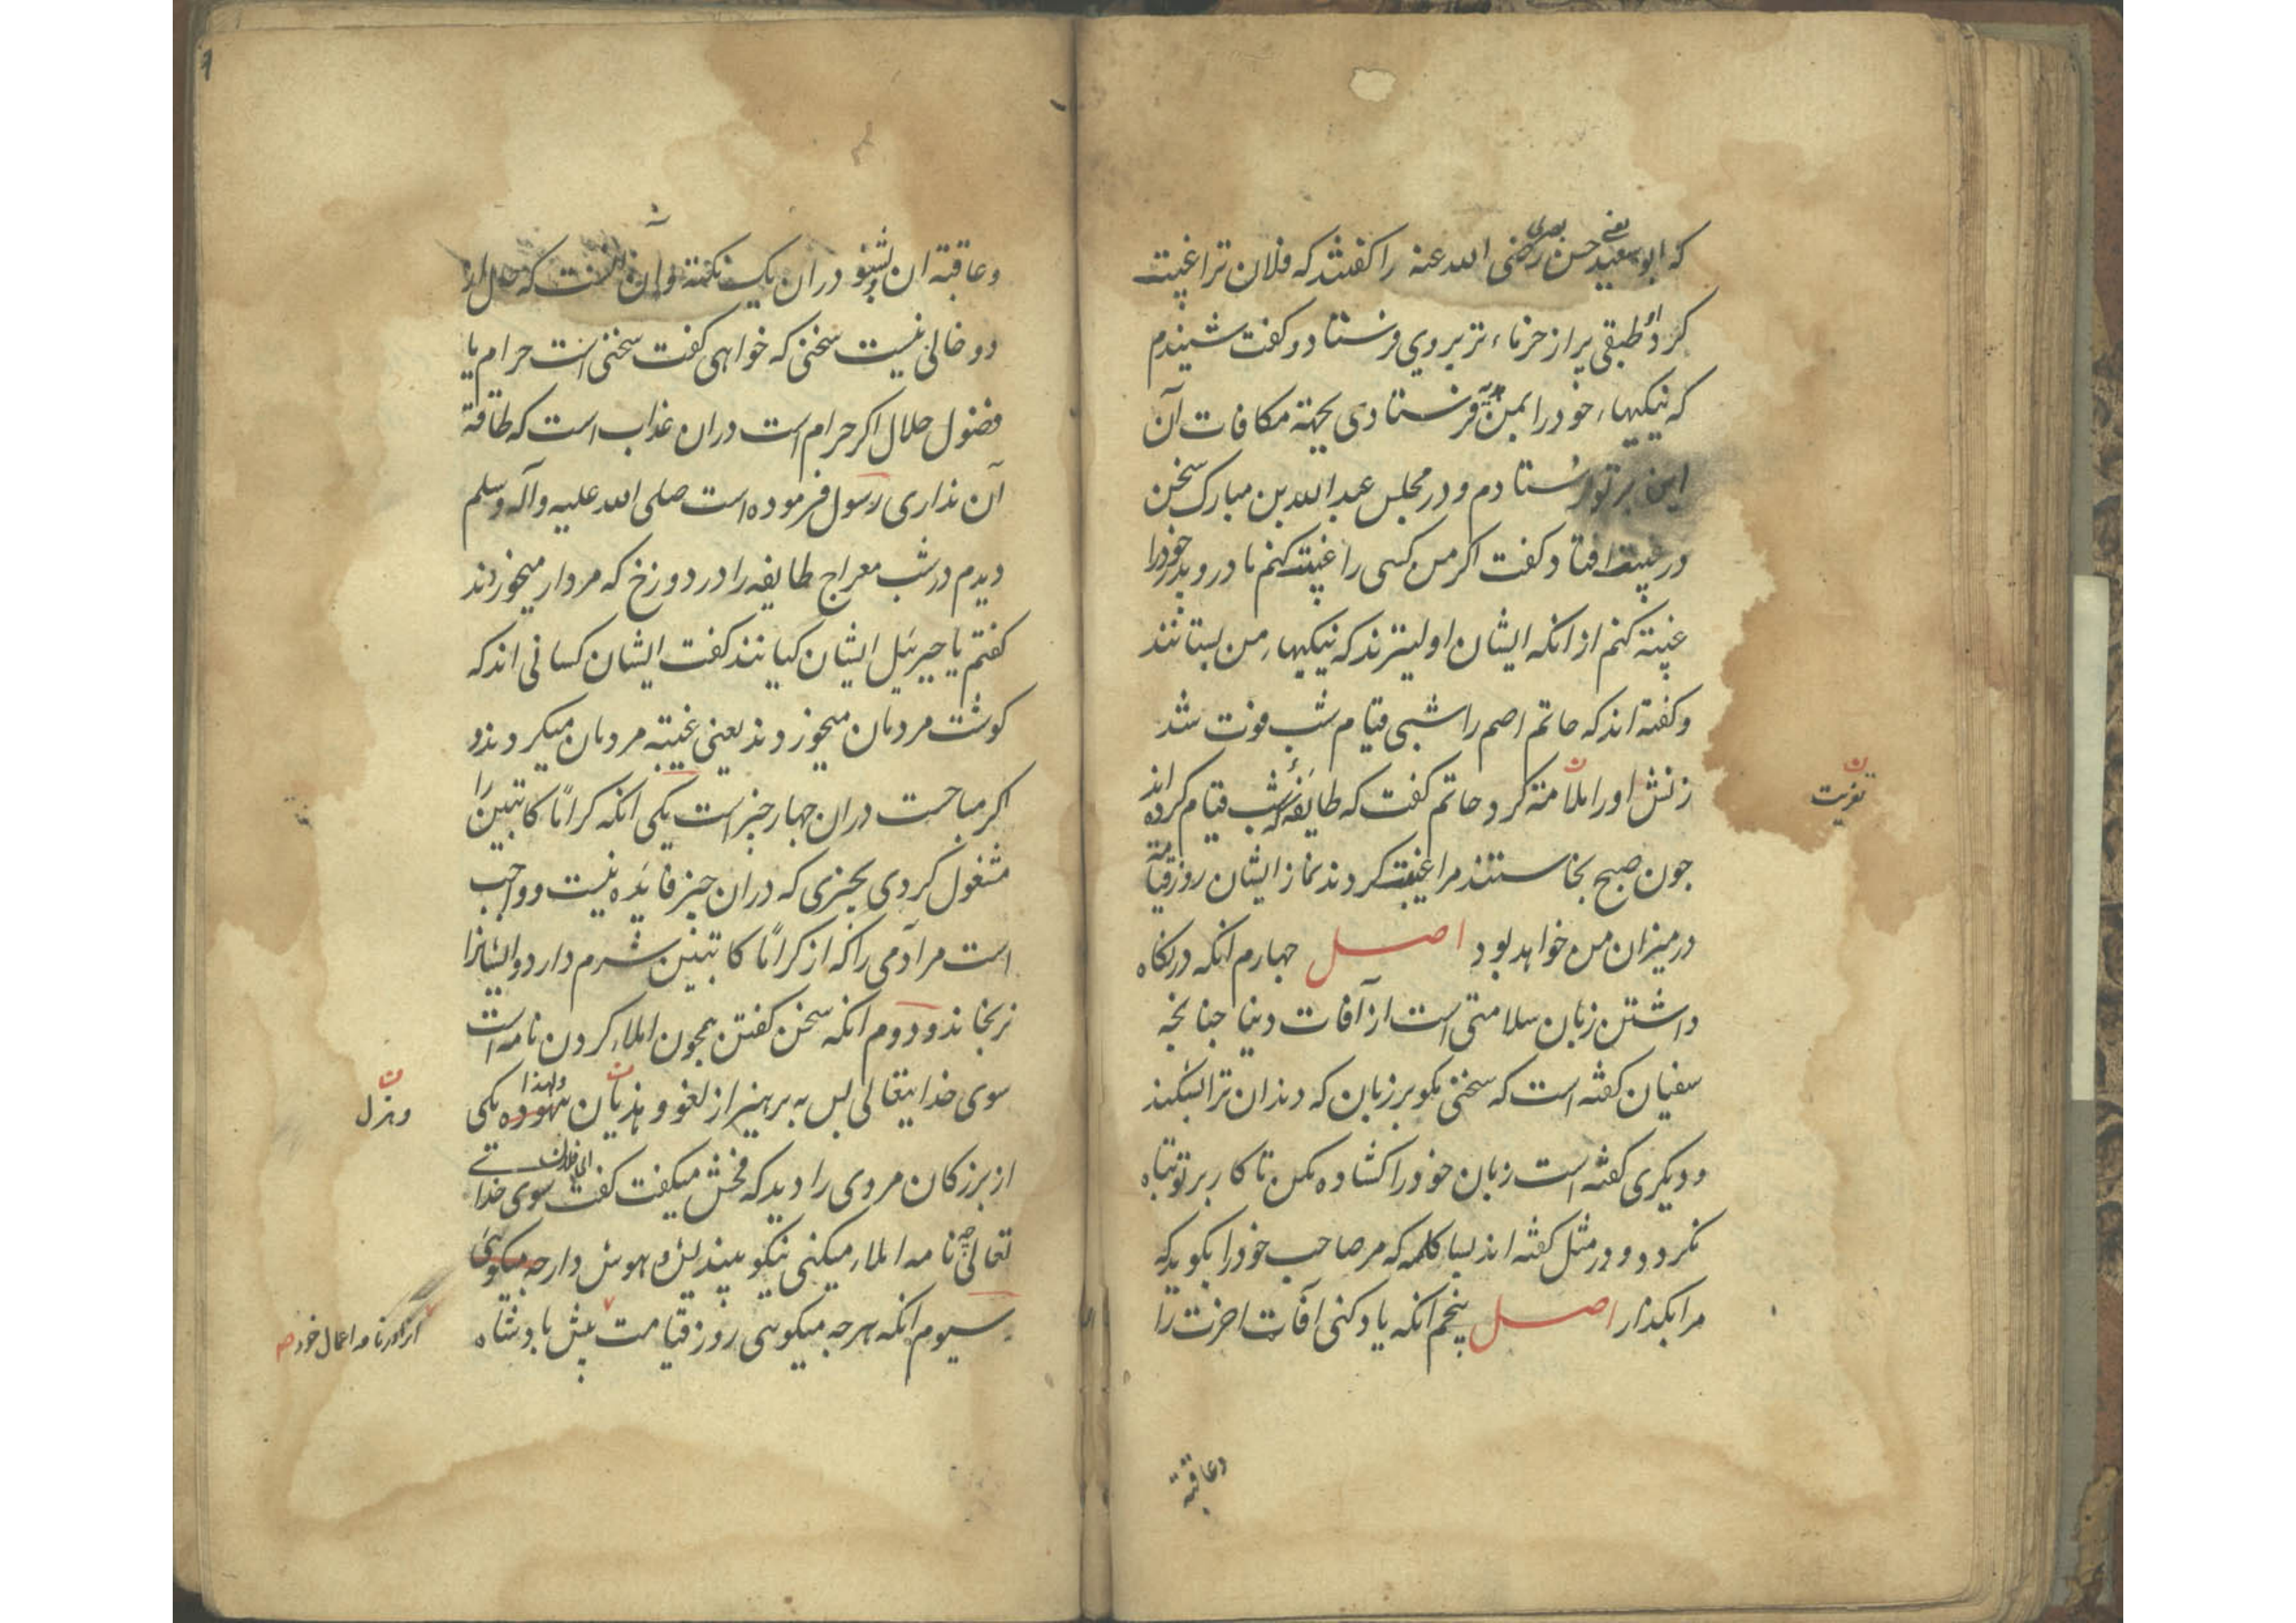 که ابو سعید یعنی حسن بصری رضی الله عنه را کفتند که فلان ترا غیبت
کرد او طبقی پر از خرماء تر بروی فرستاد و کفت شنیدم
که نیکیهاء خود را بمن فرستادی بجهة مکافات آن
این بر تو فرستادم و در مجلس عبد الله بن مبارک سخن
در غیبت افتاد کفت اکر من کسی را غیبت کنم مادر و پدر خود را
غیبة کنم از انکه ایشان اولیترند که نیکیهاء من بستانند
و کفته اند که حاتم اصم را شبی قیام شب فوت شد
زنش او را ملامة کرد حاتم کفت که طایفۀ که شب قیام کرده اند
تعزیت ن
جون صبح بخاستند مرا غیبت کردند نماز ایشان روز قیامة
در میزان من خواهد بود اصل جهارم انکه در نکاه
داشتن زبان سلامتی است از آفات دنیا جنانجه
سفیان کفته است که سخنی مکو بر زبان که دندان ترا بشکند
و دیکری کفته است زبان خود را کشاده مکن تا کار بر تو تباه
نکردد و در مثل کفته اند بسا کلمه که مر صاحب خود را بکوید که
مرا بکذار اصل پنجم انکه یاد کنی آفات اخرت را
وعاقبة
وعاقبة ان بشنو در ان یک نکته و ان انست که حال از
دو خالی نیست سخنی که خواهی کفت سخنی است حرام یا
فضول حلال اکر حرام است دران عذاب است که طاقة
آن نداری رسول فرموده است صلی الله علیه وآله وسلم
دیدم در شب معراج طایفه را در دوزخ که مردار میخوردند
کفتم یا جبرئیل ایشان کیانند کفت ایشان کسانی اند که
کوشت مردمان میخوردند یعنی غیبة مردمان میکردند و
اکر مباحست دران جهار جیز است یکی انکه کراما کاتبین را
مشغول کردی بجیزی که دران جیز فایده نیست و واجب
است مر آدمی را که از کراما کاتبین شرم دارد و ایشانرا
نرنجاند و دوم انکه سخن کفتن همجون املاء کردن نامه است
سوی خدایتعالی پس به برهیز از لغو و هذیان بیهوده ولهذا یکی
وهزل ن
از بزرکان مردی را دید که فحش میکفت کفت ای فلان سوی خدا تے
تعالی جه نامه املاء میکنی نیکو بیندیش و هوش دار جه میکوئی
سیوم انکه هرجه میکویی روز قیامت پیش پادشاه
انرا در نامه اعمال خود صح